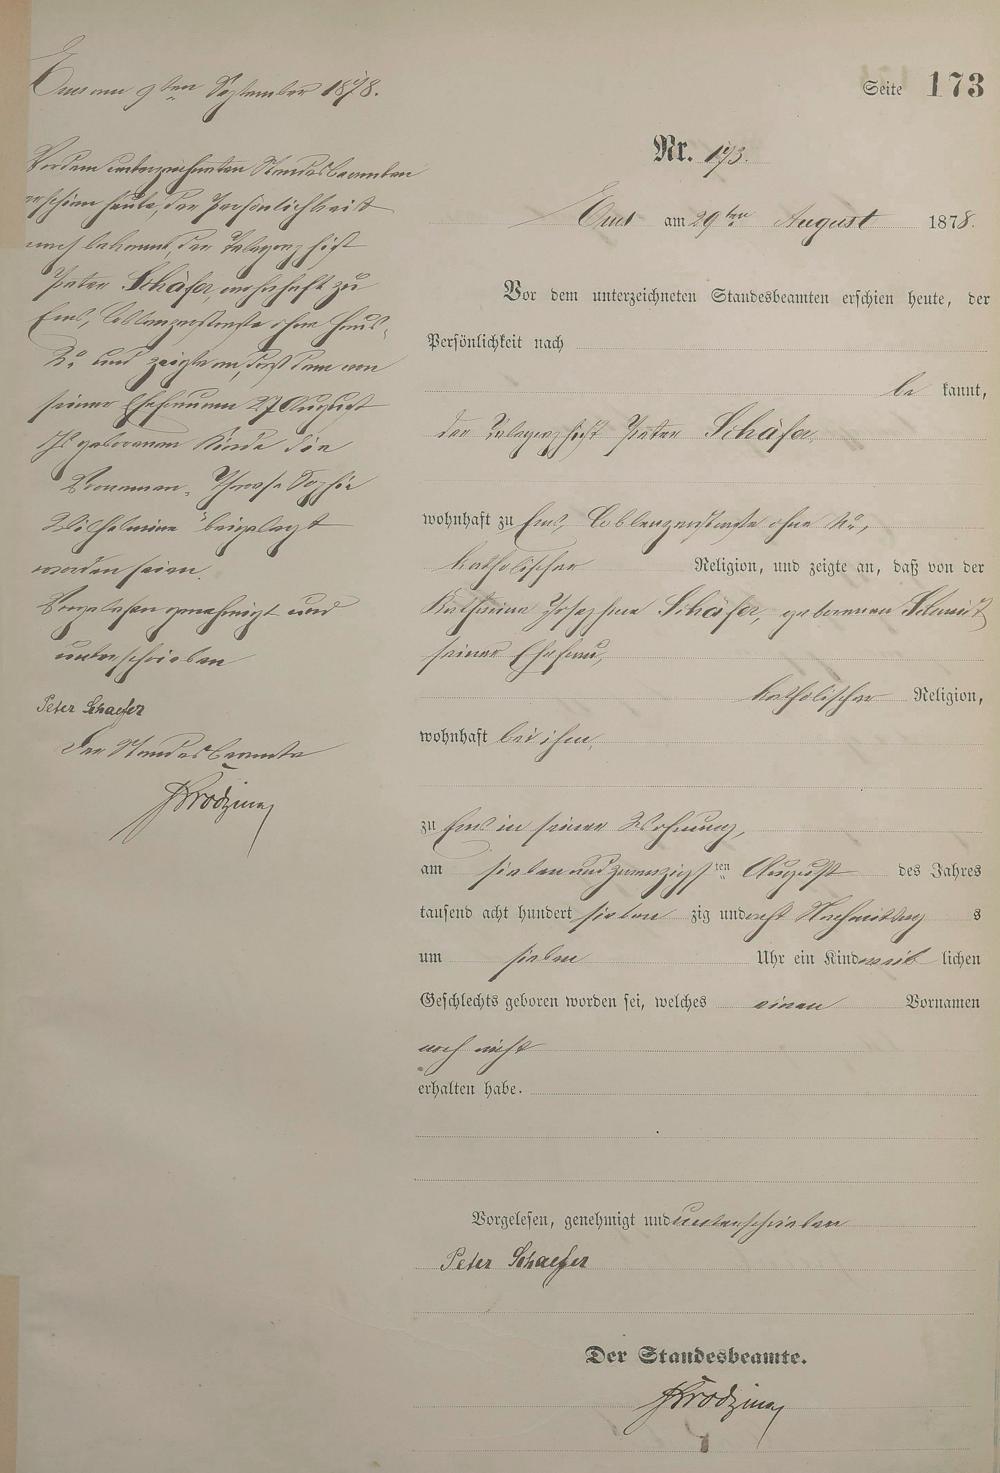 Ems am 9ten September 1878.
Vor dem unterzeichneten Standesbeamten
erschien heute, der Persönlichkeit
nach bekannt, der Telegraphist
Peter Schäfer, wohnhaft zu
Ems, Coblenzerstraße ohne Haus-
No und zeigte an, daß dem von
seiner Ehefrau am 27 August
geborenen Kinde die
Vornamen Sophie
Wilhelmine beigelegt
worden seien.
Vorgelesen genehmigt und
unterschrieben
Peter Schaefer
Der Standesbeamte
Seite 173
Nr. 173.
Ems am 29ten August 1878.
Vor dem unterzeichneten Standesbeamten erschien heute, der
Persönlichkeit nach
be kannt,
der Telegraphist Peter Schäfer,
wohnhaft zu Ems, Coblenzerstraße ohne No,
katholischer Religion, und zeigte an, daß von der
Katharina Josephine Schäfer, geborenen Schmidt
seiner Ehefrau,
katholischer Religion,
wohnhaft bei ihm,
zu Ems in seiner Wohnung,
am sieben und zwanzigsten August des Jahres
tausend acht hundert sieben zig und acht Nachmittag s
um sieben Uhr ein Kind weib lichen
Geschlechts geboren worden sei, welches einen Vornamen
noch nicht
erhalten habe.
Vorgelesen, genehmigt und unterschrieben
Peter Schaefer
Der Standesbeamte.